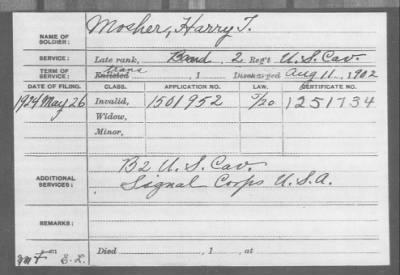 NAME OF SOLDIER: Mosher, Harry T.
SERVICE: Late rank, Band, 2 Reg't U.S. Cav.
TERM OF SERVICE: Enlisted trans , 1 Discharged Aug 11, 1902
DATE OF FILING. CLASS. APPLICATION NO. LAW. CERTIFICATE NO.
1924 May 26 Invalid, 1501952 5/20 1251734
Widow,
Minor,
ADDITIONAL SERVICES: B 2 U.S. Cav.
Signal Corps U.S.A.
REMARKS:
E.L. Died , 1 , at